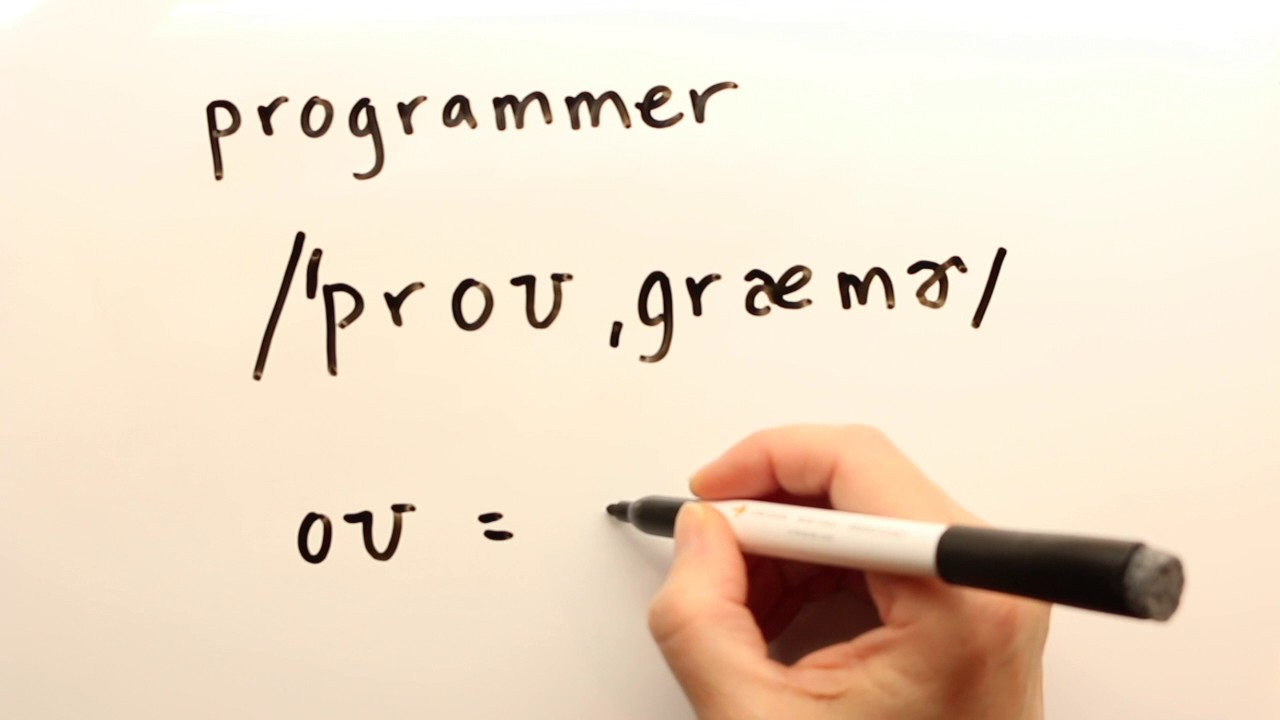 programmer
/ˈproʊˌgræmɚ/
oʊ =